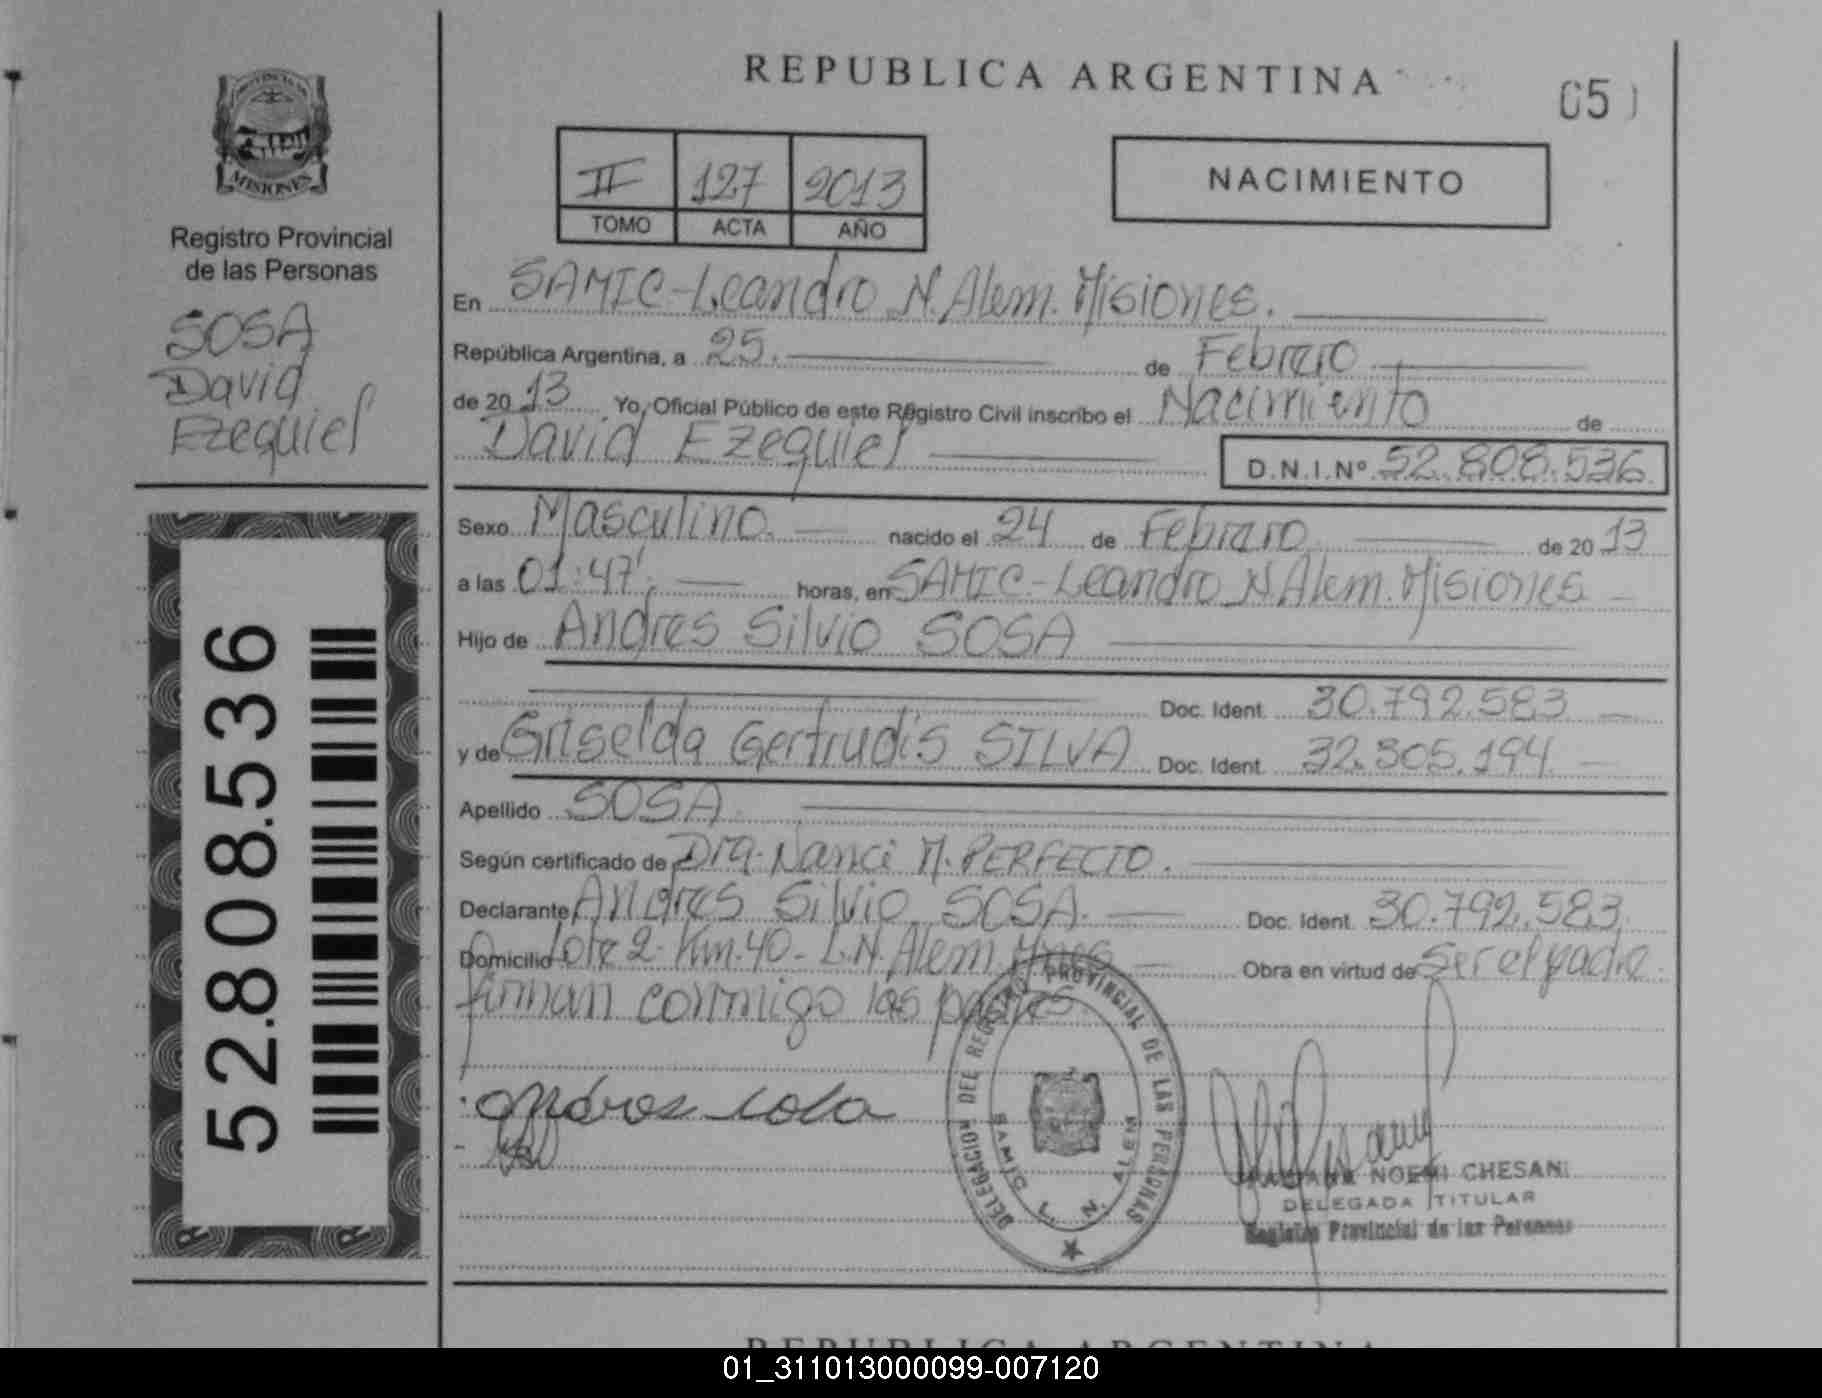 REPUBLICA ARGENTINA
05
PROVINCIA DE
MISIONES
Registro Provincial
de las Personas
SOSA
David
Ezequiel
52.808.536
II 127 2013
TOMO ACTA AÑO
NACIMIENTO
En SAMIC-Leandro N. Alem. Misiones.
República Argentina, a 25. de Febrero
de 2013 Yo, Oficial Público de este Registro Civil inscribo el Nacimiento de
David Ezequiel D.N.I.Nº 52.808.536
Sexo Masculino. nacido el 24 de Febrero de 2013
a las 01:47'. horas, en SAMIC-Leandro N. Alem. Misiones
Hijo de Andres Silvio SOSA
Doc. Ident. 30.792.583
y de Griselda Gertrudis SILVA Doc. Ident. 32.305.194
Apellido SOSA.
Según certificado de Dra. Nanci M. PERFECTO.
Declarante Andres Silvio SOSA. Doc. Ident. 30.792.583
Domicilio Lote 2- Km.40- L.N. Alem. Mnes Obra en virtud de Ser el padre.
firman conmigo las partes.
DELEGACION DEL REGISTRO PROVINCIAL DE LAS PERSONAS
SAMIC L. N. ALEM
NOEMI CHESANI
DELEGADA TITULAR
Registro Provincial de las Personas
REPUBLICA ARGENTINA
01_311013000099-007120